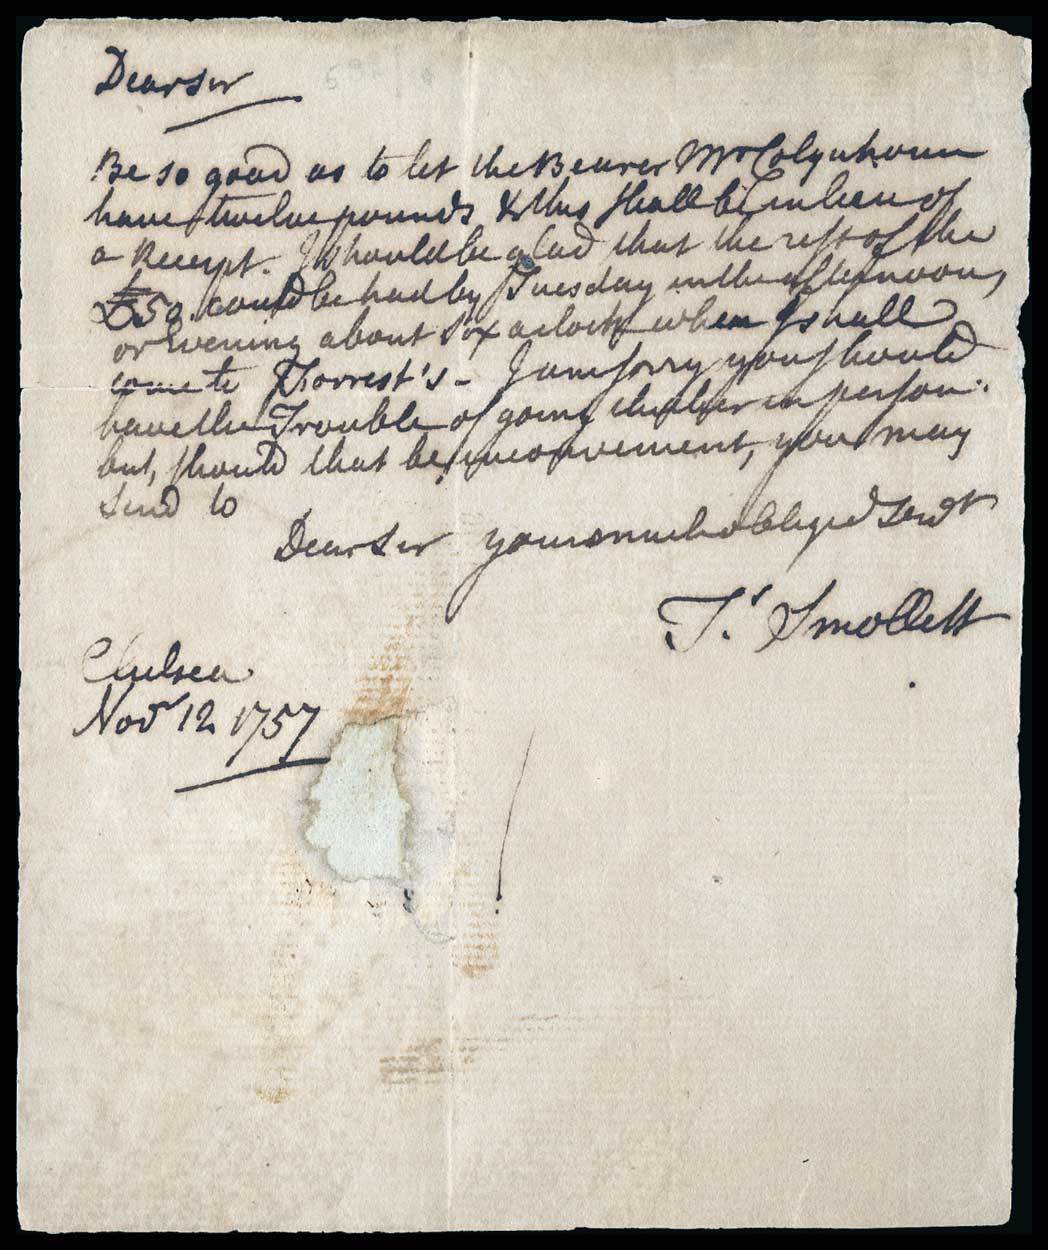 Dear Sir
Be so good as to let the Bearer Mr Colquhoun
have twelve pounds & this shall be in lieu of
a Receipt. I should be glad that the rest of the
£50 could be had by Tuesday in the afternoon,
or evening about six a clock when I shall
come to Forrest's - I am sorry you should
have the Trouble of going thither in person:
but, should that be inconvenient, you may
send to
Dear Sir your much obliged Servt
Ts Smollett
Chelsea
Novr 12 1757